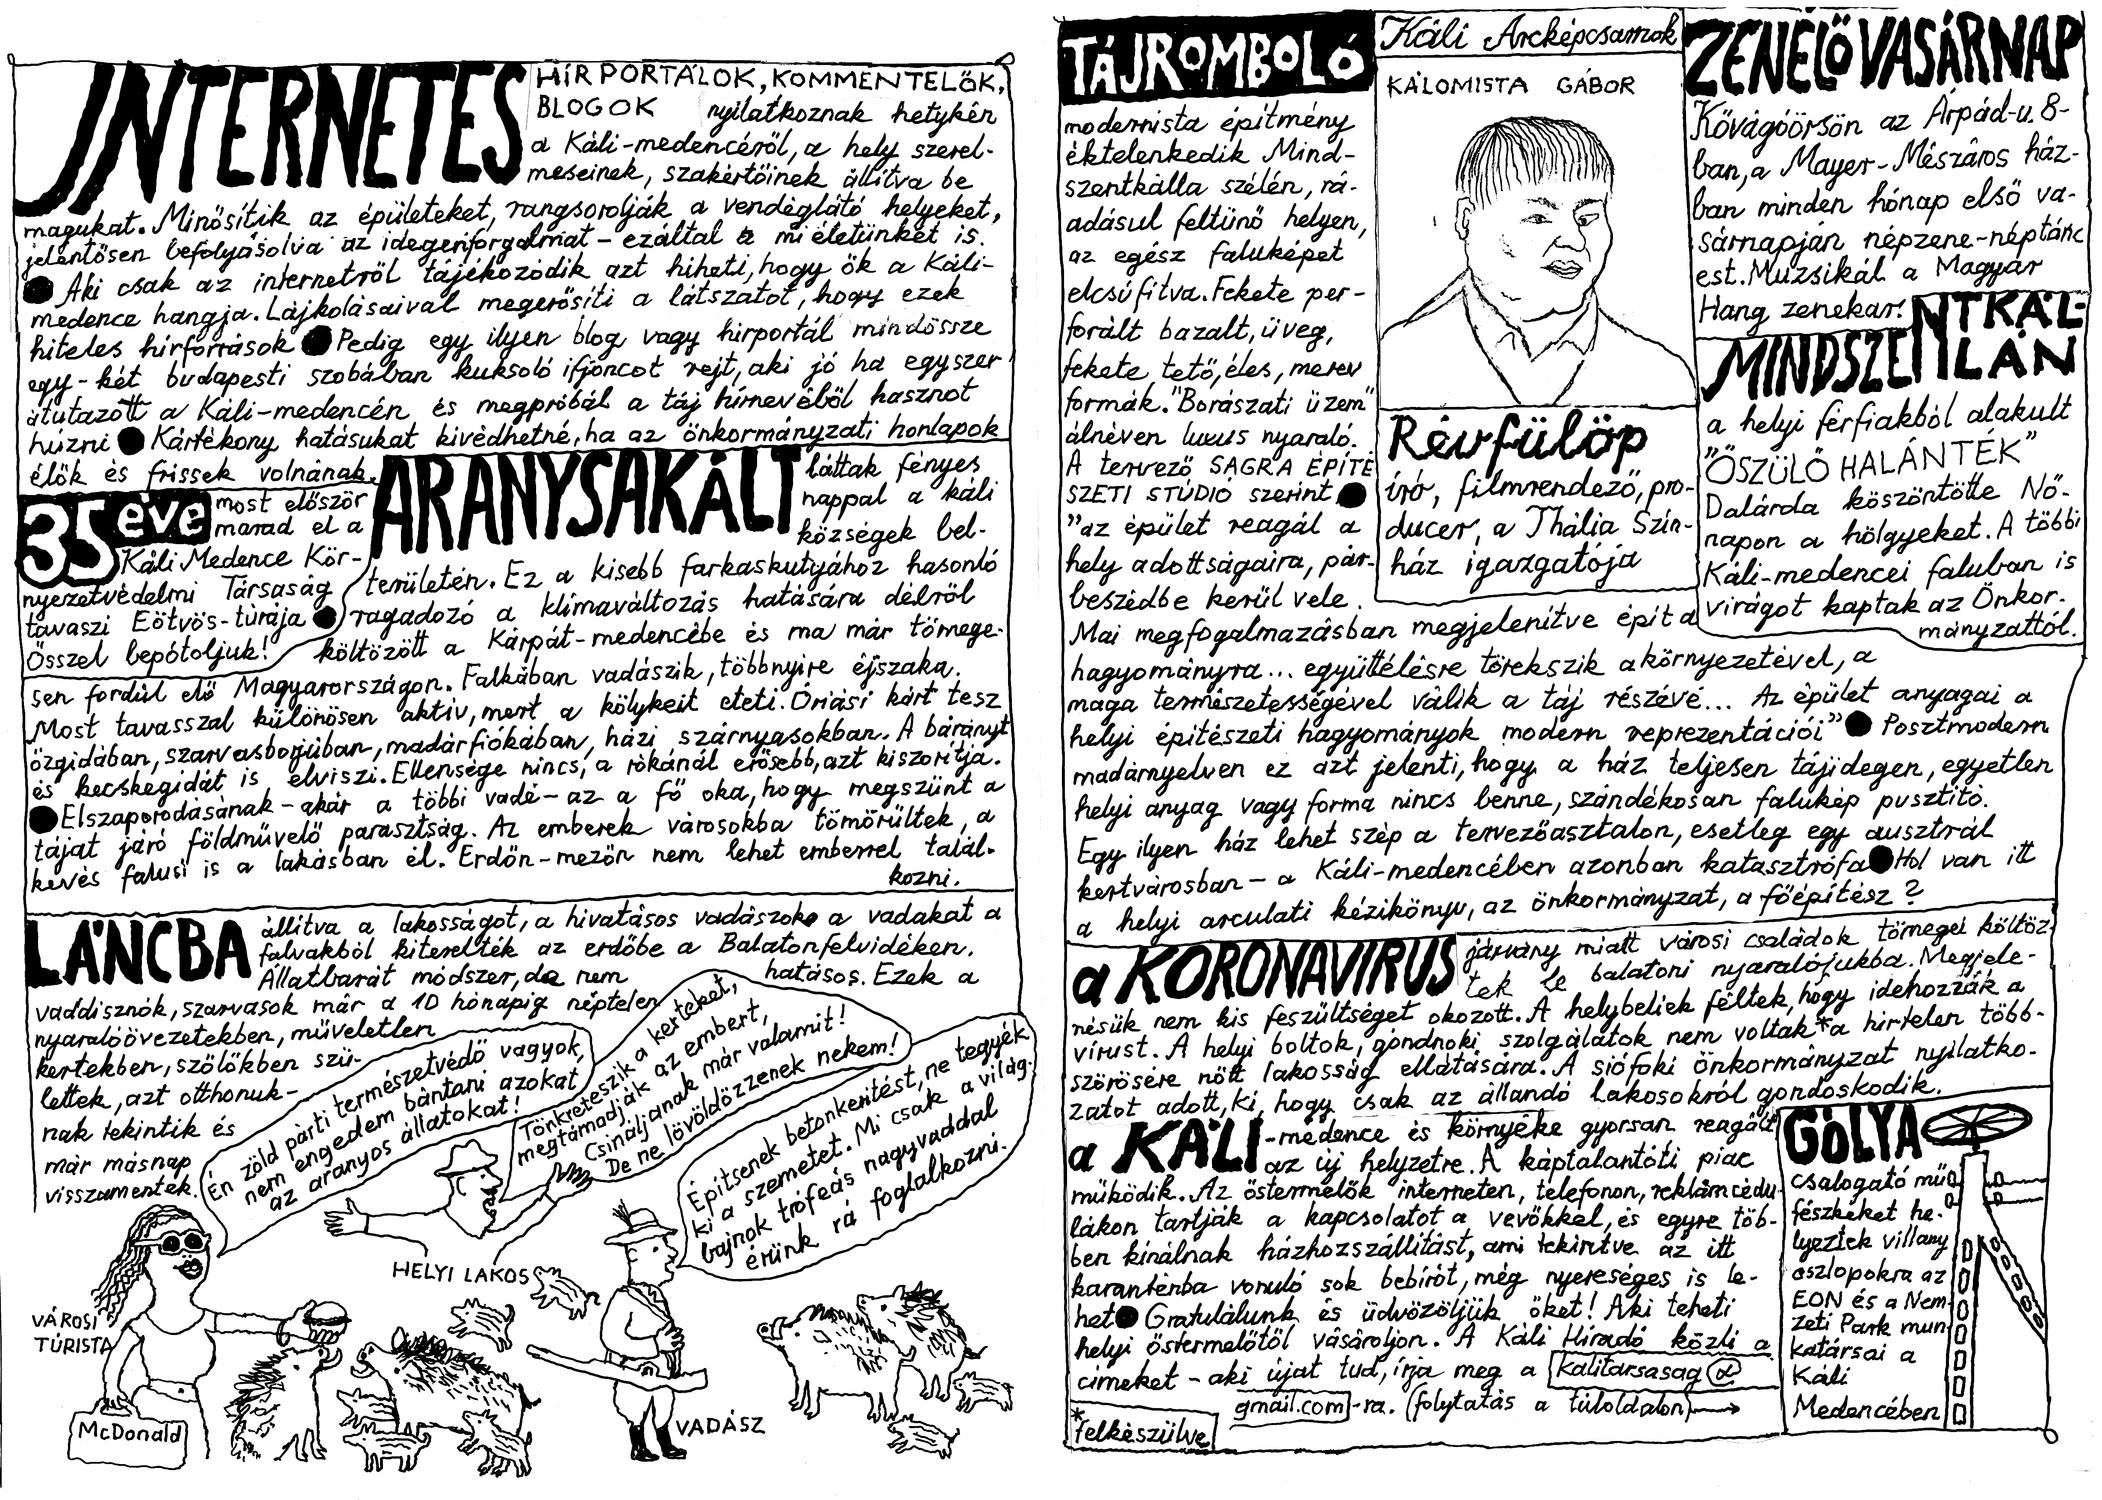 INTERNETES
HÍRPORTÁLOK, KOMMENTELŐK,
BLOGOK nyilatkoznak hetykén
a Káli-medencéről, a hely szerel-
meseinek, szakértőinek állítva be
magukat. Minősítik az épületeket, rangsorolják a vendéglátó helyeket,
jelentősen befolyásolva az idegenforgalmat - ezáltal a mi életünket is.
● Aki csak az internetről tájékozódik azt hiheti, hogy ők a Káli-
medence hangja. Lájkolásaival megerősíti a látszatot, hogy ezek
hiteles hírforrások ● Pedig egy ilyen blog vagy hírportál mindössze
egy-két budapesti szobában kuksoló ifjoncot rejt, aki jó ha egyszer
átutazott a Káli-medencén és megpróbál a táj hírnevéből hasznot
húzni ● Kártékony hatásukat kivédhetné, ha az önkormányzati honlapok
élők és frissek volnának.
35 éve
most először
marad el a
Káli Medence Kör-
nyezetvédelmi Társaság
tavaszi Eötvös-túrája ●
Ősszel bepótoljuk!
ARANYSAKÁLT
láttak fényes
nappal a káli
községek bel-
területén. Ez a kisebb farkaskutyához hasonló
ragadozó a klímaváltozás hatására délről
költözött a Kárpát-medencébe és ma már tömege-
sen fordul elő Magyarországon. Falkában vadászik, többnyire éjszaka.
Most tavasszal különösen aktív, mert a kölykeit eteti. Óriási kárt tesz
őzgidában, szarvasborjúban, madárfiókában, házi szárnyasokban. A bárányt
és kecskegidát is elviszi. Ellensége nincs, a rókánál erősebb, azt kiszorítja.
● Elszaporodásának - akár a többi vadé - az a fő oka, hogy megszűnt a
tájat járó földművelő parasztság. Az emberek városokba tömörültek, a
kevés falusi is a lakásban él. Erdőn-mezőn nem lehet emberrel talál-
kozni.
LÁNCBA
állítva a lakosságot, a hivatásos vadászok a vadakat a
falvakból kiterelték az erdőbe a Balatonfelvidéken.
Állatbarát módszer, de nem hatásos. Ezek a
vaddisznók, szarvasok már a 10 hónapig néptelen
nyaralóövezetekben, műveletlen
kertekben, szőlőkben szü-
lettek, azt otthonuk-
nak tekintik és
már másnap
visszamentek.
Én zöld párti természetvédő vagyok,
nem engedem bántani azokat
az aranyos állatokat!
Tönkreteszik a kerteket,
megtámadják az embert,
Csináljanak már valamit!
De ne lövöldözzenek nekem!
Építsenek betonkerítést, ne tegyék
ki a szemetet. Mi csak a világ-
bajnok trófeás nagyvaddal
érünk rá foglalkozni.
VÁROSI
TÚRISTA
HELYI LAKOS
McDonald
VADÁSZ
TÁJROMBOLÓ
modernista építmény
éktelenkedik Mind-
szentkálla szélén, rá-
adásul feltűnő helyen,
az egész faluképet
elcsúfítva. Fekete per-
forált bazalt, üveg,
fekete tető, éles, merev
formák. "Borászati üzem"
álnéven luxus nyaraló.
A tervező SAGRA ÉPÍTÉ
SZETI STÚDIÓ szerint ●
"az épület reagál a
hely adottságaira, pár-
beszédbe kerül vele.
Mai megfogalmazásban megjelenítve épít a
hagyományra... együttélésre törekszik a környezetével, a
maga természetességével válik a táj részévé... Az épület anyagai a
helyi építészeti hagyományok modern reprezentációi" ● Posztmodern
madárnyelven ez azt jelenti, hogy a ház teljesen tájidegen, egyetlen
helyi anyag vagy forma nincs benne, szándékosan falukép pusztító.
Egy ilyen ház lehet szép a tervezőasztalon, esetleg egy ausztrál
kertvárosban - a Káli-medencében azonban katasztrófa ● Hol van itt
a helyi arculati kézikönyv, az önkormányzat, a főépítész?
Káli Arcképcsarnok
KÁLOMISTA GÁBOR
Révfülöp
író, filmrendező, pro-
ducer, a Thália Szín-
ház igazgatója
ZENÉLŐ VASÁRNAP
Kővágóörsön az Árpád-u. 8-
ban, a Mayer-Mészáros ház-
ban minden hónap első va-
sárnapján népzene-néptánc
est. Muzsikál a Magyar
Hang zenekar!
MINDSZENTKÁL-
LÁN
a helyi férfiakból alakult
"ŐSZÜLŐ HALÁNTÉK"
Dalárda köszöntötte Nő-
napon a hölgyeket. A többi
Káli-medencei faluban is
virágot kaptak az Önkor-
mányzattól.
a KORONAVÍRUS
járvány miatt városi családok tömegei költöz-
tek le balatoni nyaralójukba. Megjele-
nésük nem kis feszültséget okozott. A helybeliek féltek, hogy idehozzák a
vírust. A helyi boltok, gondnoki szolgálatok nem voltak* a hirtelen több-
szörösére nőtt lakosság ellátására. A siófoki önkormányzat nyilatko-
zatot adott, ki, hogy csak az állandó lakosokról gondoskodik.
a KÁLI
-medence és környéke gyorsan reagált
az új helyzetre. A káptalantóti piac
működik. Az őstermelők interneten, telefonon, reklámcédu-
lákon tartják a kapcsolatot a vevőkkel, és egyre töb-
ben kínálnak házhozszállítást, ami tekintve az itt
karanténba vonuló sok bebírót, még nyereséges is le-
het ● Gratulálunk és üdvözöljük őket! Aki teheti
helyi őstermelőtől vásároljon. A Káli Híradó közli a
címeket - aki újat tud, írja meg a kalitarsasag@
gmail.com-ra. (folytatás a túloldalon) →
*felkészülve
GÓLYA
csalogató mű
fészkeket he-
lyeztek villany
oszlopokra az
EON és a Nem-
zeti Park mun
katársai a
Káli
Medencében